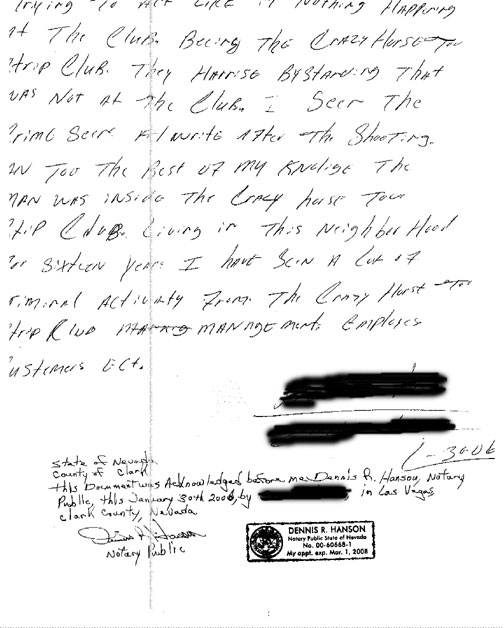 Trying To Act Like if Nothing Happening
At The Club. Becing The Crazy Horse Too
Strip Club. They Harrise Bystanding That
was Not At The Club. I Seen The
Crime Seen After The Shooting.
Too The Best of My Knolige The
Man was inside The Crazy horse Tow
Stip Club. Living in This Neighbor Hood
For Sixteen years I have Sein A Lot of
Criminal Activity From The Crazy Horse Too
Strip Club Management. Employes
Customers Ect.
1-30-06
State of Nevada
County of Clark
this Document was Acknowledged before me, Dennis R. Hanson, Notary
Public, this January 30th 2006, by in Las Vegas
Clark County, Nevada
Notary Public
DENNIS R. HANSON
Notary Public State of Nevada
No. 00-60568-1
My appt. exp. Mar. 1, 2008